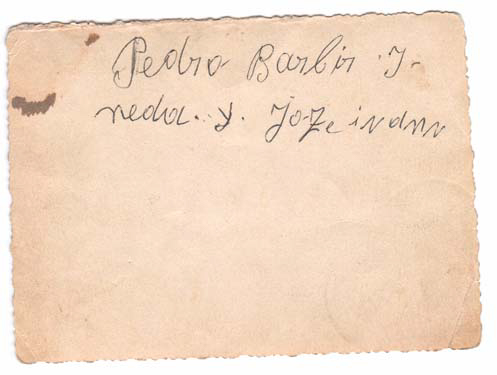 Pedro Barbir J.
neda. y. Joze ivann